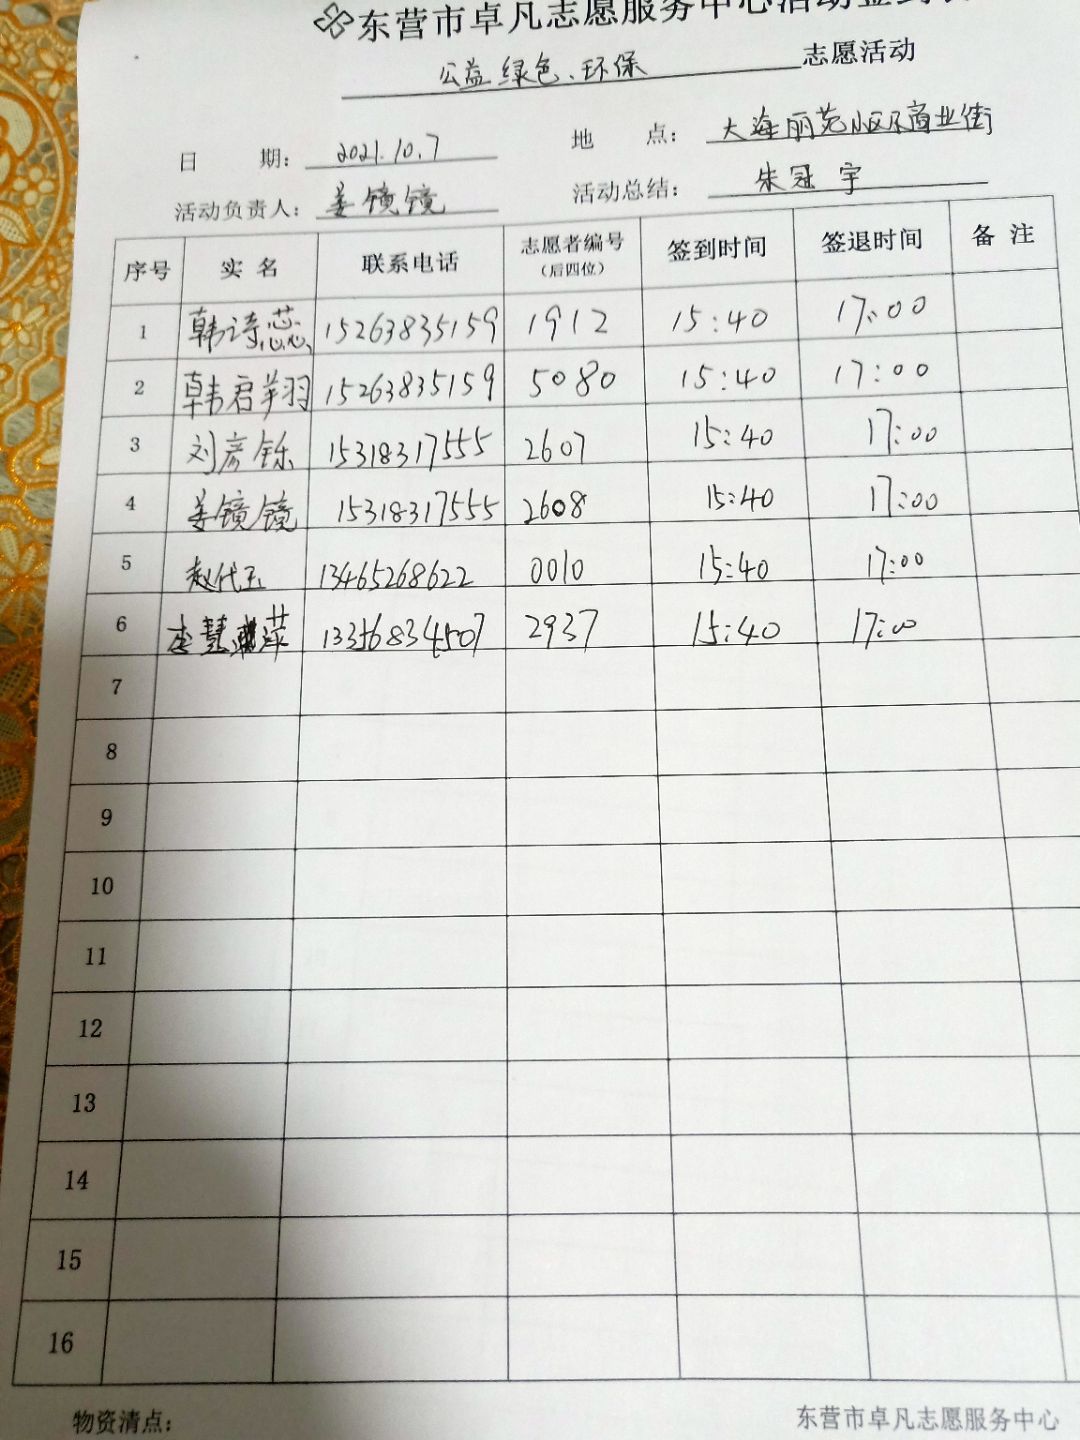 东营市卓凡志愿服务中心活动签到表
公益绿色、环保 志愿活动
日 期: 2021.10.7 地 点: 大海丽苑小区及商业街
活动负责人: 姜镜镜 活动总结: 朱冠宇
序号 实名 联系电话 志愿者编号(后四位) 签到时间 签退时间 备注
1 韩诗蕊 15263835159 1912 15:40 17:00
2 韩君羽 15263835159 5080 15:40 17:00
3 刘彦铄 15318317555 2607 15:40 17:00
4 姜镜镜 15318317555 2608 15:40 17:00
5 赵代玉 13465268622 0010 15:40 17:00
6 李慧萍 13356834507 2937 15:40 17:00
7
8
9
10
11
12
13
14
15
16
物资清点: 东营市卓凡志愿服务中心